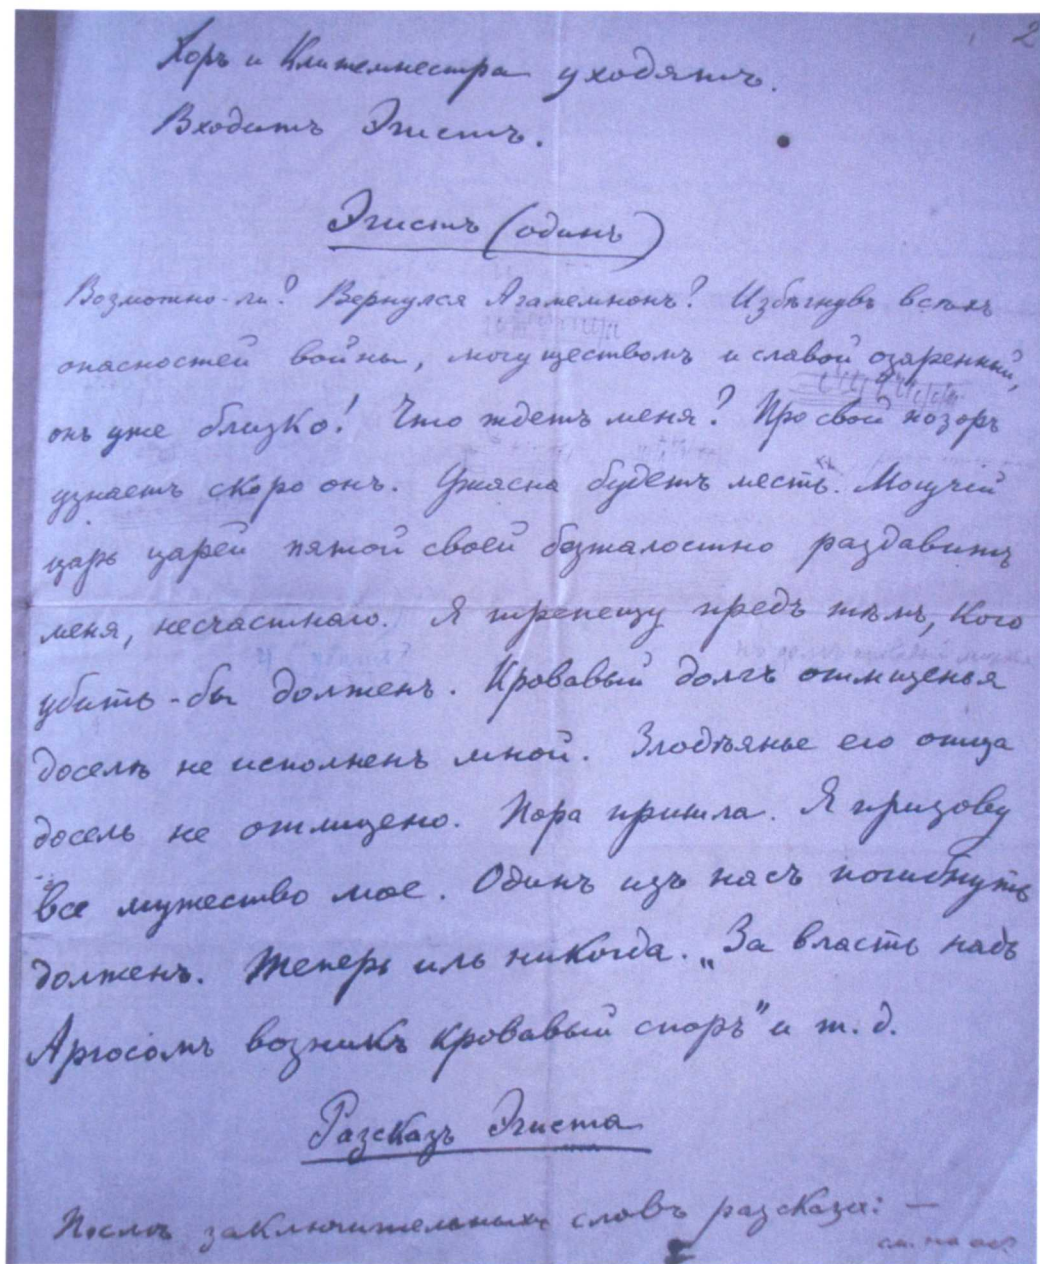 2
Хоръ и Клитемнестра уходятъ.
Входитъ Эгистъ.
Эгистъ (одинъ)
Возможно-ли? Вернулся Агамемнонъ? Избѣгнувъ всѣхъ
опасностей войны, могуществомъ и славой озаренный,
онъ уже близко! Что ждетъ меня? Про свой позоръ
узнаетъ скоро онъ. Ужасна будетъ месть. Могучій
царь царей пятой своей безжалостно раздавитъ
меня, несчастнаго. Я трепещу предъ тѣмъ, кого
убить-бы долженъ. Кровавый долгъ отмщенья
доселѣ не исполненъ мной. Злодѣянье его отца
досель не отмщено. Пора пришла. Я призову
все мужество мое. Одинъ изъ насъ погибнуть
долженъ. Теперь иль никогда. „За власть надъ
Аргосомъ возникъ кровавый споръ" и т. д.
Разсказъ Эгиста
Послѣ заключительныхъ словъ разсказа: —
см. на об.